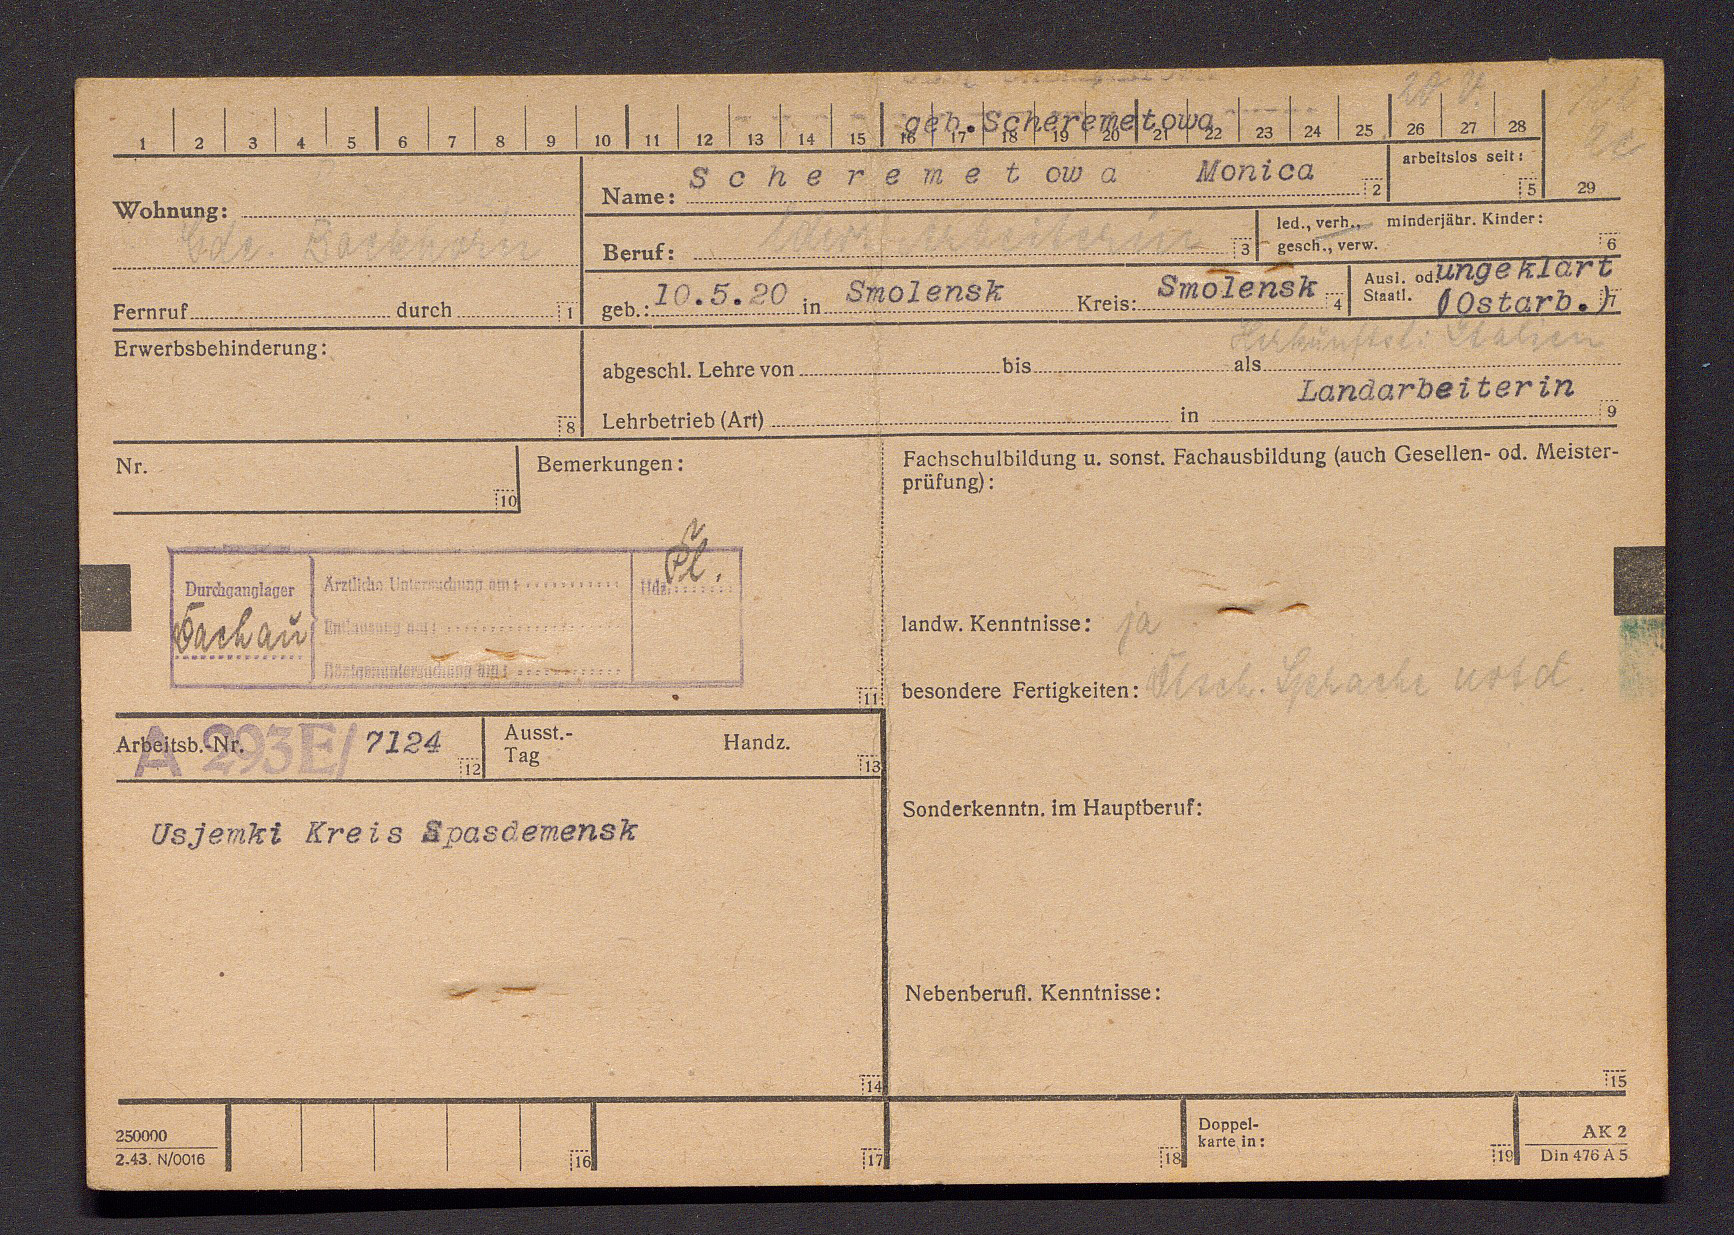 20. V.
geb. Scheremetowa
1 2 3 4 5 6 7 8 9 10 11 12 13 14 15 16 17 18 19 20 21 22 23 24 25 26 27 28
Name: Scheremetowa Monica 2
arbeitslos seit: 5
29
Wohnung:
Gde. Bockhorn
Beruf: Arbeiterin 3
led., verh., minderjähr. Kinder:
gesch., verw. 6
Fernruf durch 1
geb.: 10.5.20 in Smolensk Kreis: Smolensk 4
Ausl. od. ungeklärt
Staatl. (Ostarb.) 7
Erwerbsbehinderung:
8
Herkunftsl.: Italien
abgeschl. Lehre von bis als
Landarbeiterin
Lehrbetrieb (Art) in 9
Nr.
10
Bemerkungen:
Durchganglager
Dachau
Ärztliche Untersuchung am:
Entlausung am:
Röntgenuntersuchung am:
Hdz.
11
Arbeitsb.-Nr. A 293E/ 7124 12
Ausst.-
Tag
Handz.
13
Usjemki Kreis Spasdemensk
14
Fachschulbildung u. sonst. Fachausbildung (auch Gesellen- od. Meister-
prüfung):
landw. Kenntnisse: ja
besondere Fertigkeiten: Dtsch. Sprache
Sonderkenntn. im Hauptberuf:
Nebenberufl. Kenntnisse:
15
250000
2.43. N/0016
16
17
18
Doppel-
karte in:
19
AK 2
Din 476 A 5